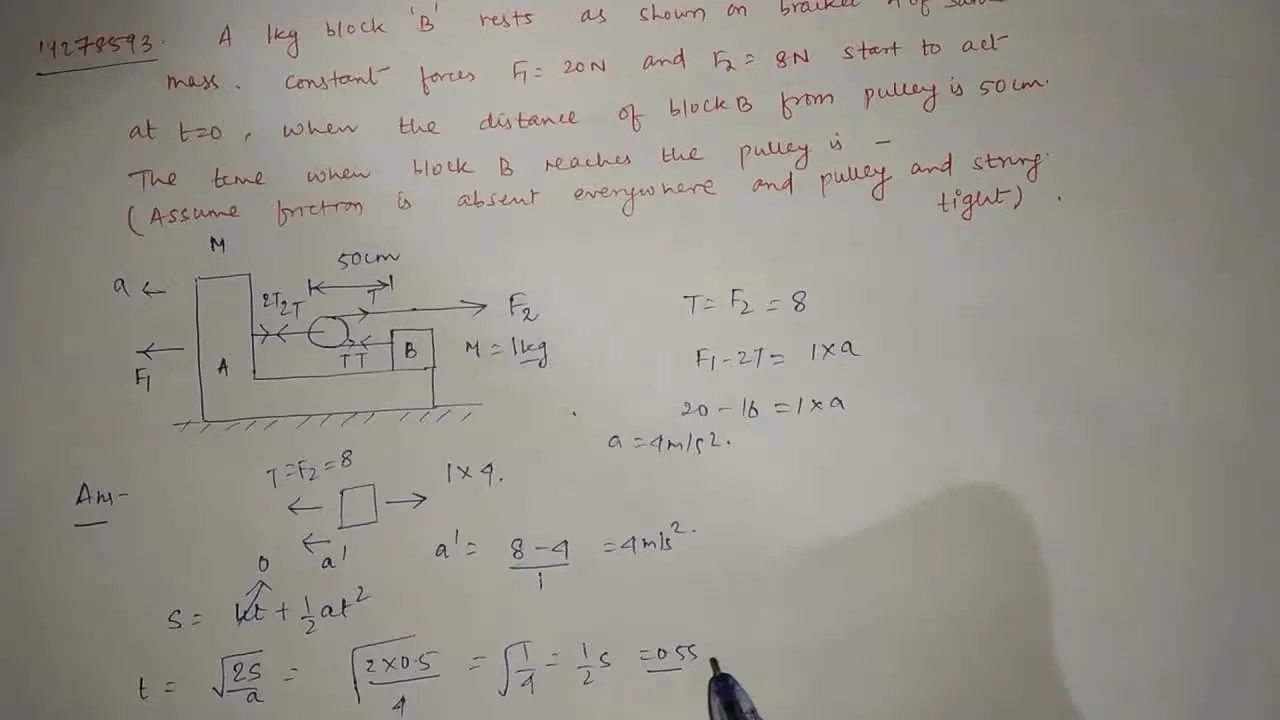 14278593. A 1kg block 'B' rests as shown on bracket A of same
mass. constant forces F1 = 20N and F2 = 8N start to act
at t=0, when the distance of block B from pulley is 50cm.
The time when block B reaches the pulley is -
(Assume friction is absent everywhere and pulley and string
tight).
M
50cm
a
2T 2T
T
F2
T = F2 = 8
F1
A
T T
B
M = 1kg
F1 - 2T = 1 x a
20 - 16 = 1 x a
a = 4m/s2.
T = F2 = 8
1 x 4.
Ans-
a'
a' = 8-4/1 = 4m/s2.
0
s = ut + 1/2 at2
t = √2S/a = √2x0.5/4 = √1/4 = 1/2 s = 0.5s